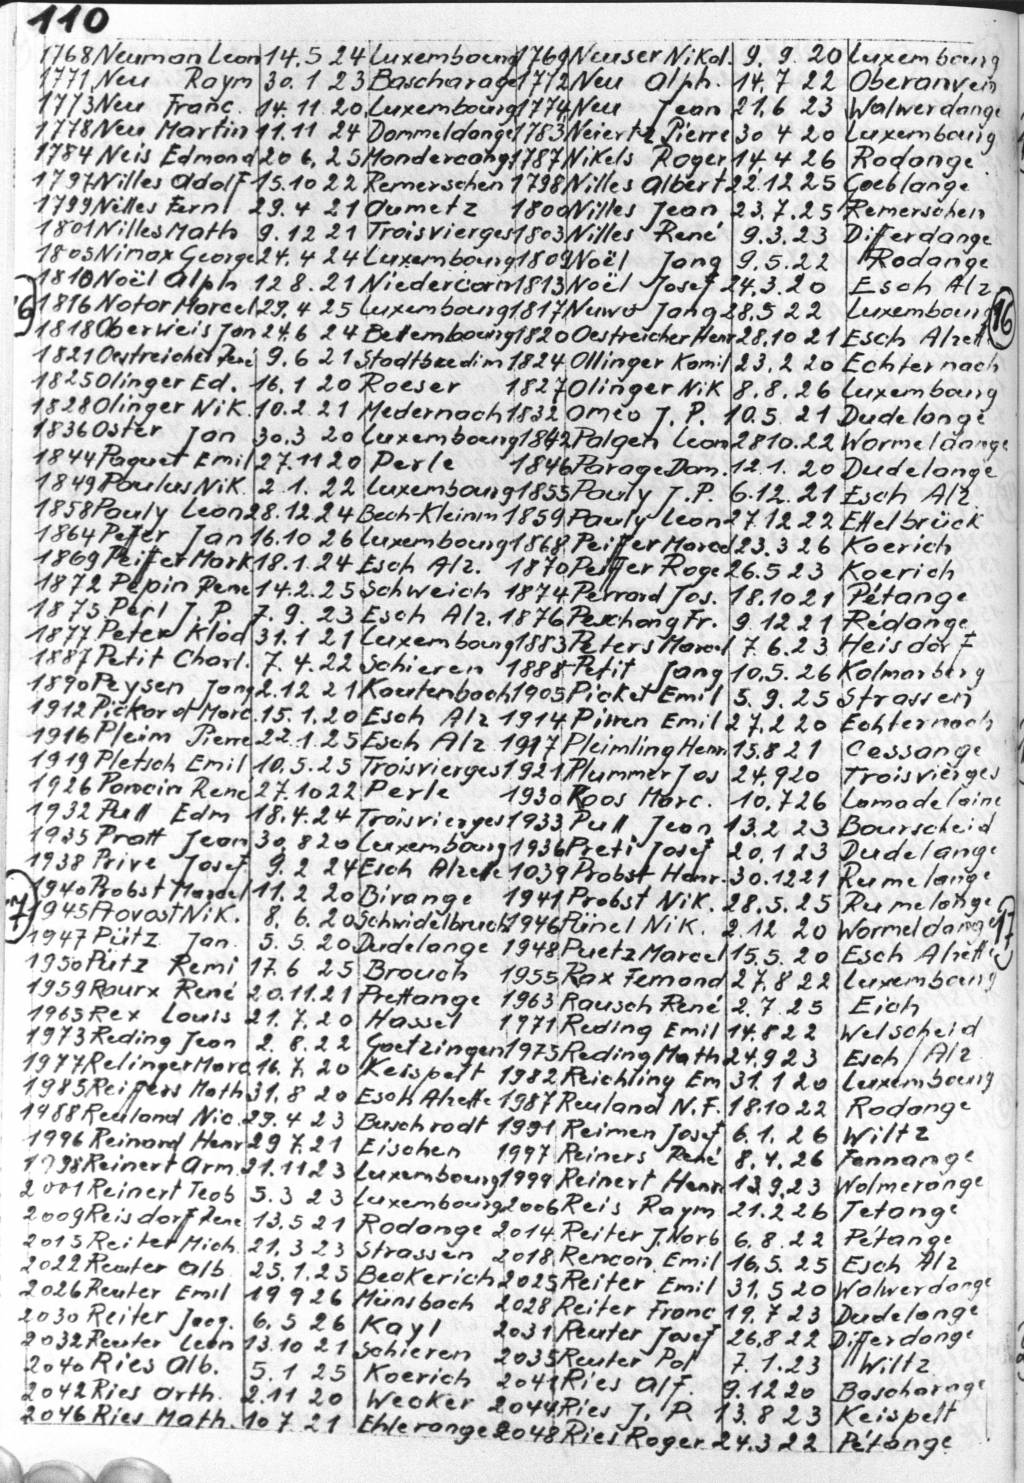 110
1768 Neuman Leon 14.5 24 Luxembourg 1769 Neuser Nikol. 9. 9. 20 Luxembourg
1771 Neu Raym 30. 1 23 Bascharage 1772 Neu Alph. 14.7 22 Oberanven
1773 Neu Franc. 14. 11. 20 Luxembourg 1774 Neu Jean 21.6 23 Walwerdange
1778 Neu Martin 11.11 24 Dommeldange 1783 Neiertz Pierre 30 4 20 Luxembourg
1784 Neis Edmond 20 6. 25 Mondercang 1787 Nikels Roger 14.4 26 Rodange
1797 Nilles Adolf 15.10 22 Remerschen 1798 Nilles Albert 22.12 25 Goeblange
1799 Nilles Fernl 29. 4 21 Aumetz 1800 Nilles Jean 23.7.25 Remerschen
1801 Nilles Math 9. 12 21 Troisvierges 1803 Nilles René 9.3. 23 Differdange
1805 Nimax George 24. 4 24 Luxembourg 1809 Noël Jang 9. 5. 22 Rodange
1810 Noël Alph 12 8. 21 Niedercorn 1813 Noël Josef 24.3. 20 Esch Alz
16 1816 Notar Marcel 29. 4 25 Luxembourg 1817 Nuwo Jang 28.5 22 Luxembourg 16
1818 Oberweis Jan 24.6 24 Bettembourg 1820 Oestreicher Henr 28.10 21 Esch Alzett
1821 Oestreicher René 9. 6 21 Stadtbredim 1824 Ollinger Kamil 23. 2. 20 Echternach
1825 Olinger Ed. 16. 1 20 Roeser 1827 Olinger Nik 8. 8. 26 Luxembourg
1828 Olinger Nik. 10. 2. 21 Medernach 1832 Oméo J. P. 10.5. 21 Dudelange
1836 Oster Jan 30.3 20 Luxembourg 1842 Palgen Leon 28 10. 22 Wormeldange
1844 Paquet Emil 27.11 20 Perle 1846 Parage Dom. 12.1. 20 Dudelange
1849 Paulus Nik. 2. 1. 22 Luxembourg 1855 Pauly J.P. 6.12. 21 Esch Alz
1858 Pauly Leon 28.12.24 Bech-Kleinm 1859 Pauly Leon 27.12 22 Ettelbrück
1864 Peffer Jan 16.10 26 Luxembourg 1868 Peiffer Marcel 23. 3 26 Koerich
1869 Peiffer Mark 18.1. 24 Esch Alz. 1870 Peiffer Roge 26.5 23 Koerich
1872 Pepin Rene 14.2. 25 Schweich 1874 Perrard Jos. 18.10 21 Pétange
1875 Perl J. P. 7. 9. 23 Esch Alz. 1876 Perchang Fr. 9. 12 21 Rédange
1877 Peter Klod 31.1 21 Luxembourg 1883 Peters Marcel 7. 6. 23 Heisdorf
1887 Petit Charl. 7. 4. 22 Schieren 1888 Petit Jang 10.5. 26 Kolmarberg
1890 Peysen Jang 2.12 21 Kautenbach 1905 Picket Emil 5. 9. 25 Strassen
1912 Pickard Marc. 15. 1. 20 Esch Alz 1914 Pirren Emil 27.2 20 Echternach
1916 Pleim Pierre 22.1. 25 Esch Alz 1917 Pleimling Henn 15.8 21 Cessange
1919 Pletsch Emil 10.5. 25 Troisvierges 1921 Plummer Jos 24.9 20 Troisvierges
1926 Poncin Rene 27.10 22 Perle 1930 Roos Marc. 10.7 26 Lamadelaine
1932 Pull Edm 18.4. 24 Troisvierges 1933 Pull Jean 13.2 23 Bourscheid
1935 Pratt Jean 30, 8 20 Luxembourg 1936 Preti Josef 20.1 23 Dudelange
1938 Prive Josef 9. 2 24 Esch Alzette 1039 Probst Henr. 30.12 21 Rumelange
1940 Probst Marcel 11. 2 20 Bivange 1941 Probst Nik. 28. 5. 25 Rumelange
17 1945 Provost Nik. 8. 6. 20 Schwidelbruch 1946 Pünel Nik. 2.12 20 Wormeldange 17
1947 Pütz Jan. 5. 5. 20 Dudelange 1948 Puetz Marcel 15.5. 20 Esch Alzett
1950 Pütz Remi 17. 6 25 Brouch 1955 Rax Fernand 27. 8 22 Luxembourg
1959 Raurx René 20.11.21 Prettange 1963 Rausch René 2. 7. 25 Eich
1965 Rex Louis 21. 7. 20 Hassel 1971 Reding Emil 14.8 22 Welscheid
1973 Reding Jean 2. 8. 22 Goetzingen 1975 Reding Math 24.9 23 Esch/Alz
1977 Relinger Marc 16. 7. 20 Keispelt 1982 Reichling Em 31. 1 20 Luxembourg
1985 Reiffers Math 31. 8 20 Esch Alzette 1987 Reuland N.F. 18.10 22 Rodange
1988 Reuland Nic. 29. 4 23 Buschrodt 1991 Reimen Josef 6. 1. 26 Wiltz
1996 Reinard Henr 29 7. 21 Eischen 1997 Reiners René 8. 4. 26 Fennange
1998 Reinert Arm. 21.11 23 Luxembourg 1999 Reinert Henr 13.9.23 Wolmerange
2001 Reinert Teob 5. 3 23 Luxembourg 2006 Reis Raym 21.2 26 Tetange
2009 Reisdorf Rene 13. 5 21 Rodange 2014 Reiter J. Norb 6. 8. 22 Pétange
2015 Reiter Mich. 21. 3 23 Strassen 2018 Rencon Emil 16.5. 25 Esch Alz
2022 Reuter Alb 25. 1. 25 Beckerich 2025 Reiter Emil 31. 5 20 Walwerdange
2026 Reuter Emil 19 9 26 Münsbach 2028 Reiter Franc 19.7 23 Dudelange
2030 Reiter Joog. 6. 5 26 Kayl 2031 Reuter Josef 26.8 22 Differdange
2032 Reuter Leon 13.10 21 Schieren 2035 Reuter Pol 7. 1.23 Wiltz
2040 Ries Alb. 5. 1 25 Koerich 2041 Ries Alf. 9.12 20 Bascharage
2042 Ries Arth. 2.11 20 Wecker 2044 Ries J. P. 13. 8 23 Keispelt
2046 Ries Math. 10 7 21 Ehlerange 2048 Ries Roger 24.3 22 Pétange